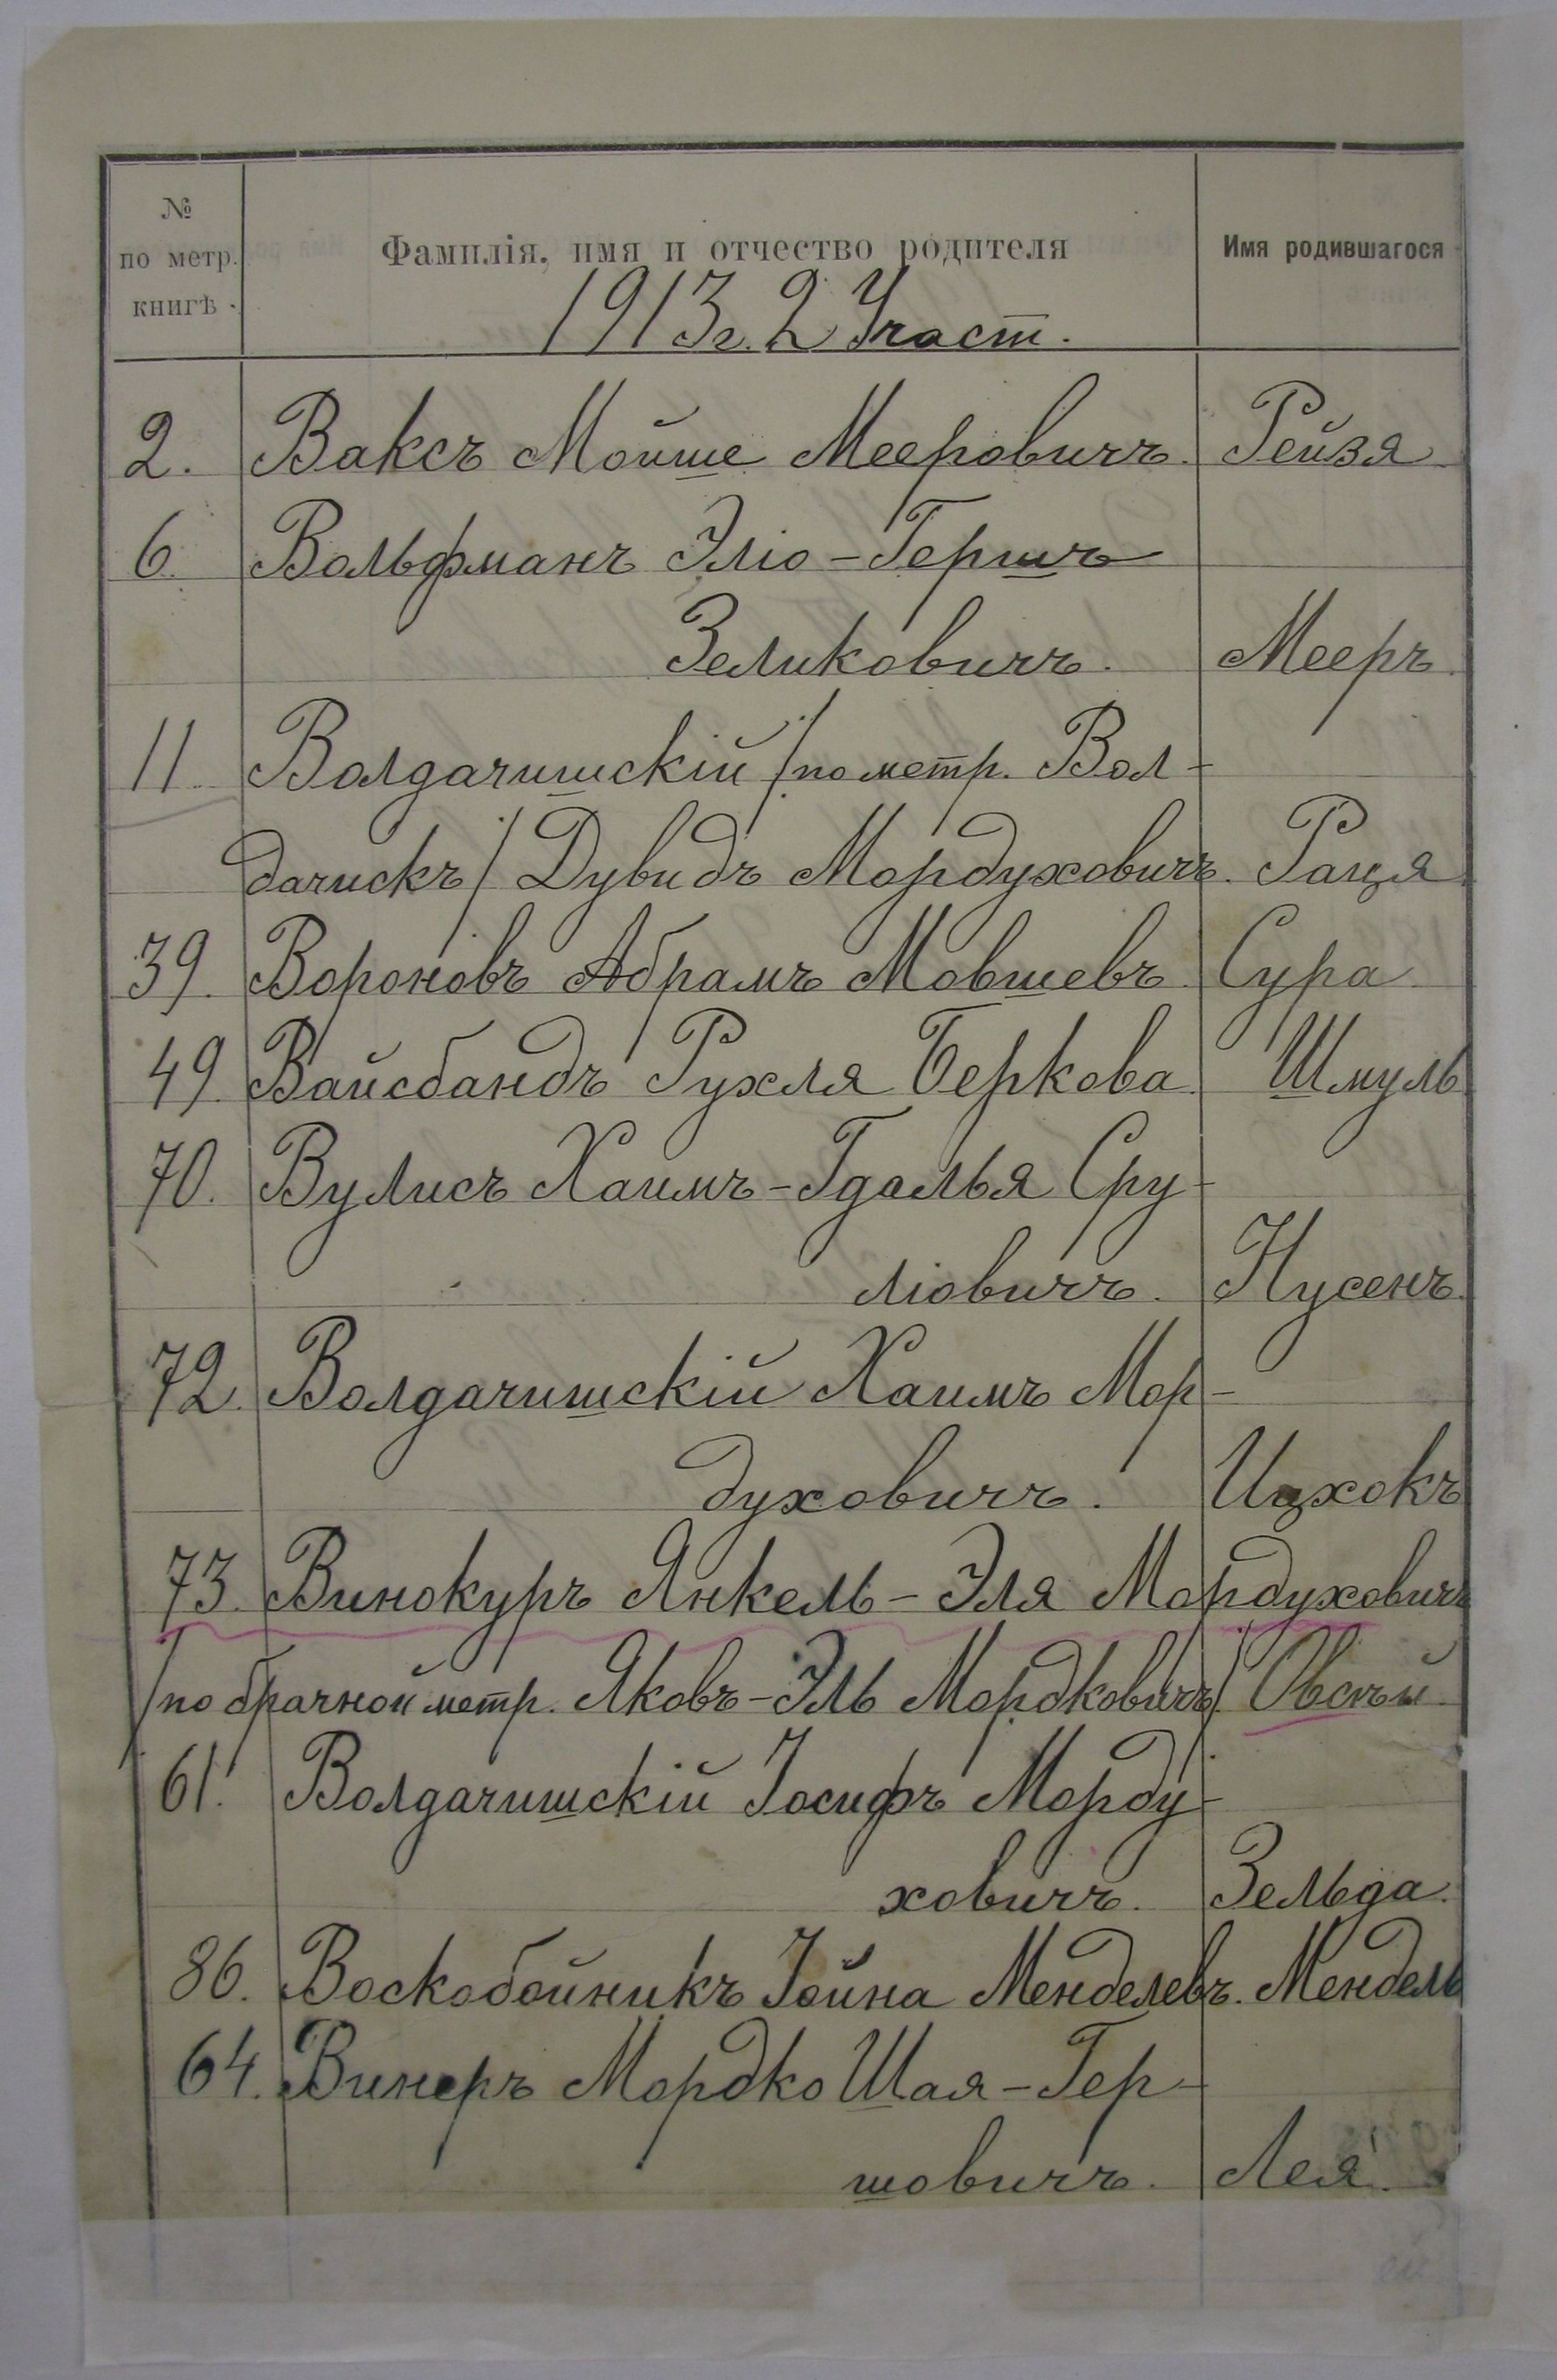 №
по метр.
книгѣ.
Фамилія, имя и отчество родителя
Имя родившагося
1913г. 2 Участ.
2. Ваксъ Мойше Мееровичъ. Рейзя
6. Вольфманъ Эліо-Гершъ
Зеликовичъ. Мееръ.
11. Волдачишскій /по метр. Вол-
дачискъ/ Дувидъ Мордуховичъ. Раця.
39. Вороновъ Абрамъ Мовшевъ. Сура
49. Вайсбандъ Рухля Беркова. Шмуль
70. Вулисъ Хаимъ-Гдалья Сру-
ліовичъ. Нусенъ.
72. Волдачишскій Хаимъ Мор-
духовичъ. Ицхокъ
73. Винокуръ Янкель-Эля Мордуховичъ
/по брачной метр. Яковъ-Эль Мордковичъ/ Овсѣй
61. Волдачишскій Іосифъ Морду-
ховичъ. Зельда.
86. Воскобойникъ Іойна Менделевъ. Мендель
64. Винеръ Мордко Шая-Гер-
шовичъ. Лея.